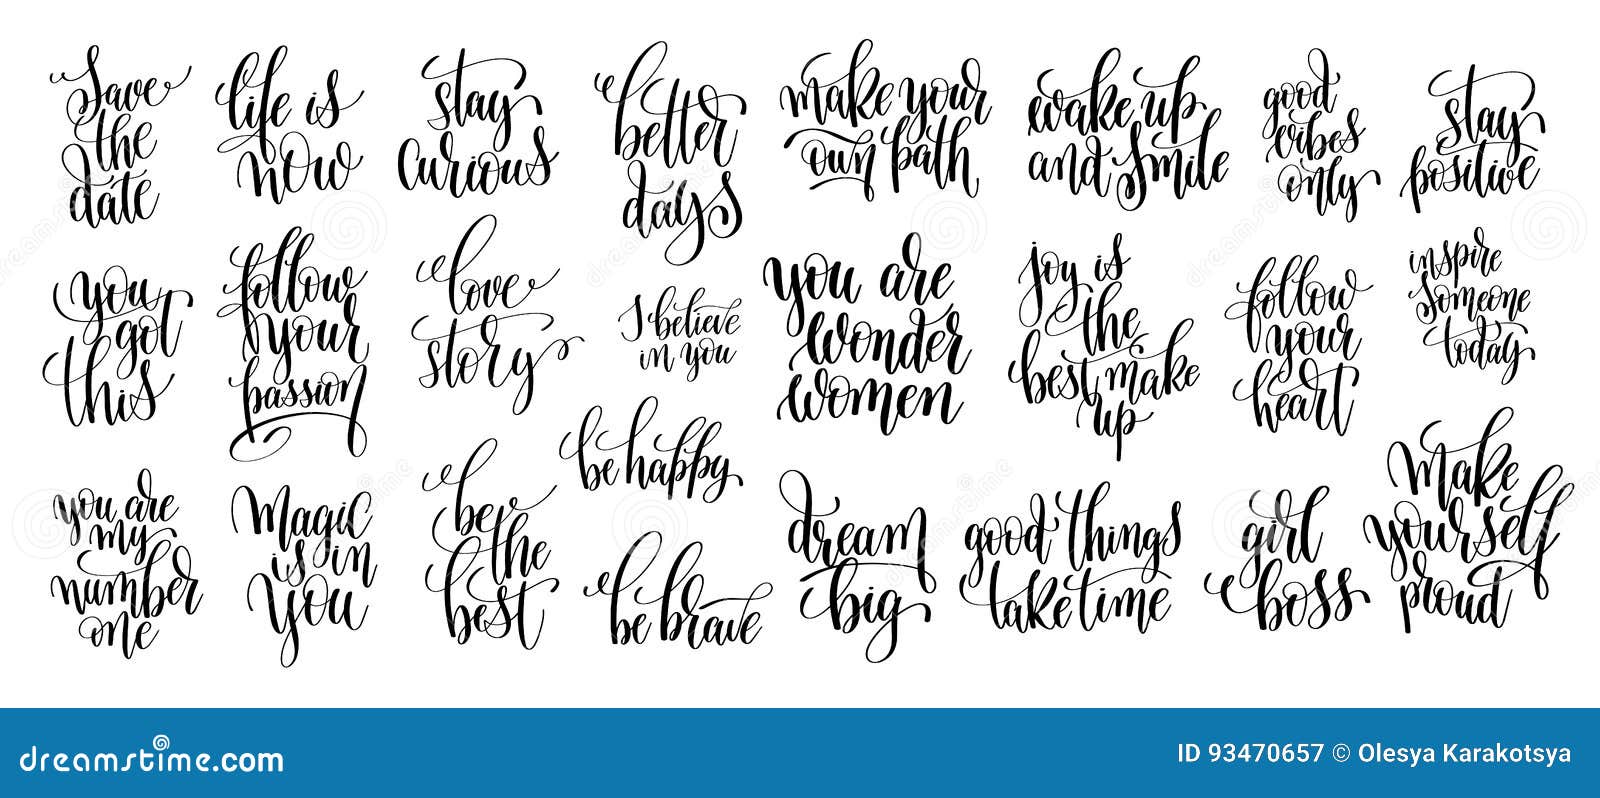 Save
the
date
life is
now
stay
curious
better
days
make your
own path
wake up
and smile
good
vibes
only
stay
positive
you
got
this
follow
your
passion
love
story
I believe
in you
you are
wonder
women
joy is
the
best make
up
follow
your
heart
inspire
someone
today
you are
my
number
one
Magic
is in
you
be
the
best
be happy
be brave
dream
big
good things
take time
girl
boss
Make
yourself
proud
dreamstime
ID 93470657 © Olesya Karakotsya